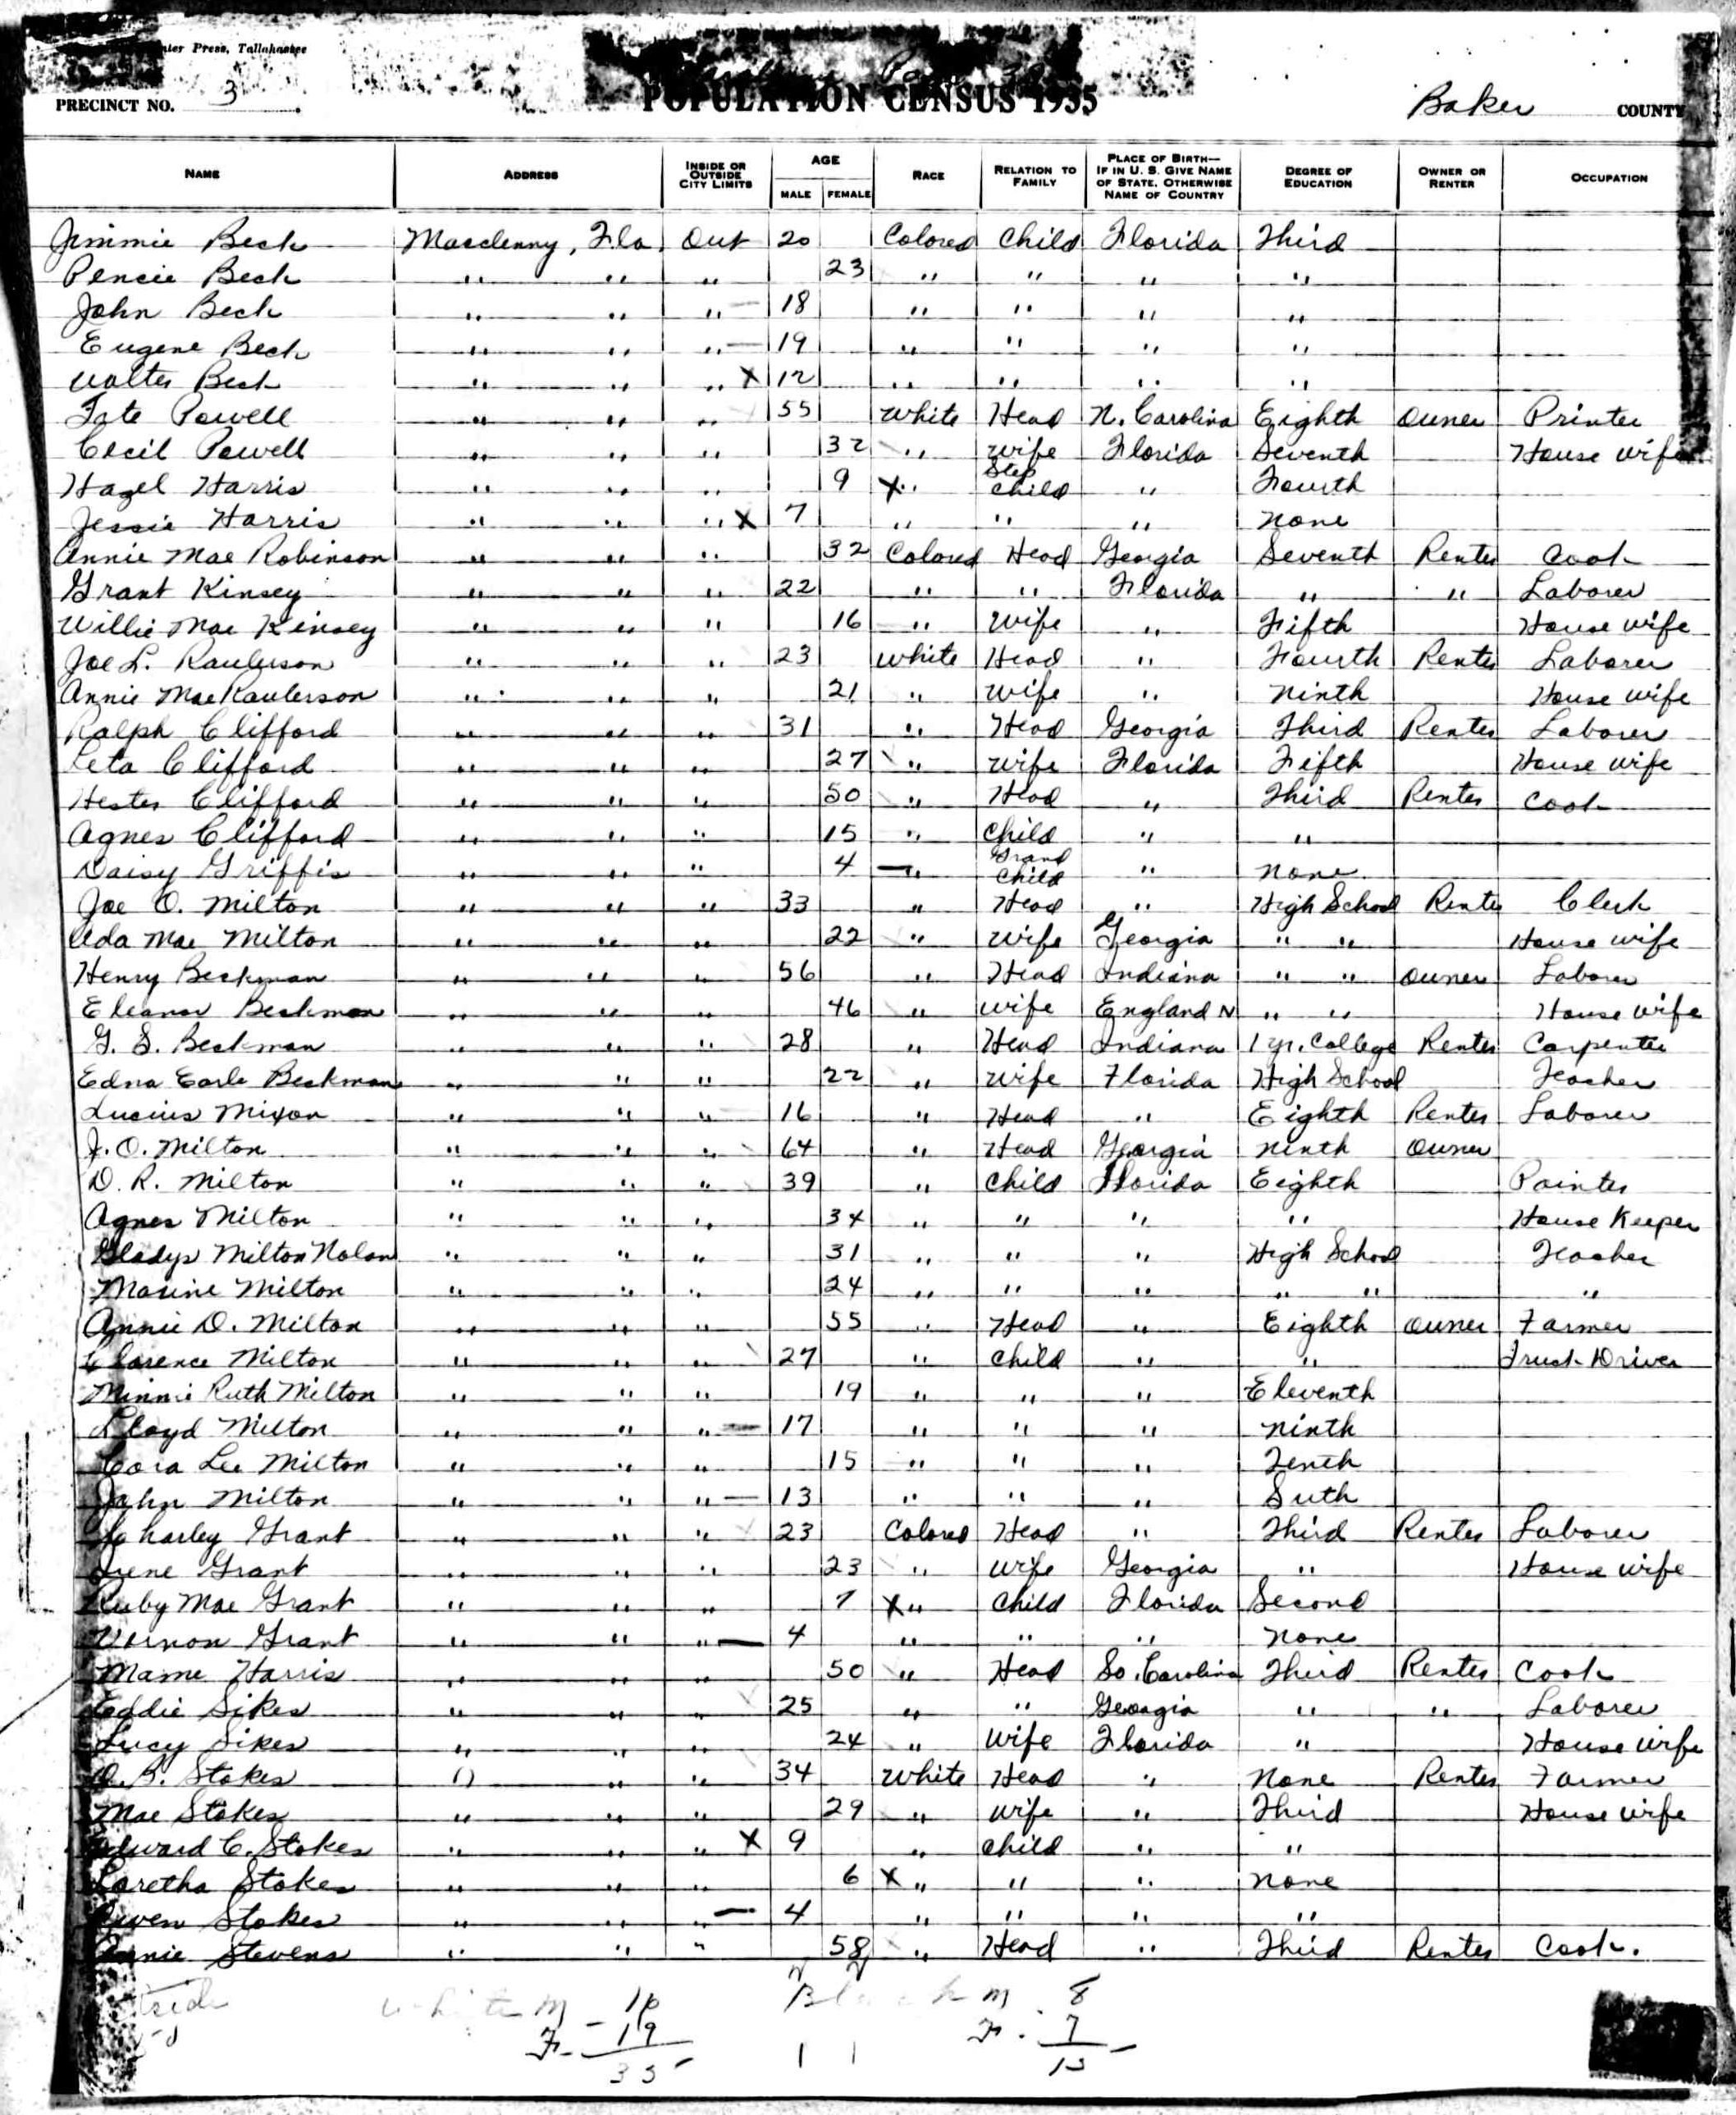 nter Press, Tallahassee
PRECINCT NO. 3 POPULATION CENSUS 1935 Baker COUNTY
NAME ADDRESS INSIDE OR OUTSIDE CITY LIMITS AGE MALE FEMALE RACE RELATION TO FAMILY PLACE OF BIRTH— IF IN U. S. GIVE NAME OF STATE. OTHERWISE NAME OF COUNTRY DEGREE OF EDUCATION OWNER OR RENTER OCCUPATION
Jimmie Beck Macclenny, Fla Out 20 Colored Child Florida Third
Pencie Beck " " " 23 " " " "
John Beck " " " — 18 " " " "
Eugene Beck " " " — 19 " " " "
Walter Beck " " " X 12 " " " "
Tate Powell " " " 55 White Head N. Carolina Eighth Owner Printer
Cecil Powell " " " 32 " Wife Florida Seventh House wife
Hazel Harris " " " 9 X " Step Child " Fourth
Jessie Harris " " " X 7 " " " None
Annie Mae Robinson " " " 32 Colored Head Georgia Seventh Renter Cook
Grant Kinsey " " " 22 " " Florida " " Laborer
Willie Mae Kinsey " " " 16 " Wife " Fifth House wife
Joe L. Raulerson " " " 23 White Head " Fourth Renter Laborer
Annie Mae Raulerson " " " 21 " Wife " Ninth House wife
Ralph Clifford " " " 31 " Head Georgia Third Renter Laborer
Leta Clifford " " " 27 " Wife Florida Fifth House wife
Hester Clifford " " " 50 " Head " Third Renter Cook
Agnes Clifford " " " 15 " Child " "
Daisy Griffis " " " 4 — " Grand Child " None
Joe O. Milton " " " 33 " Head " High School Renter Clerk
Ada Mae Milton " " " 22 " Wife Georgia " " House wife
Henry Beckman " " " 56 " Head Indiana " " Owner Laborer
Eleanor Beckman " " " 46 " Wife England N " " House wife
G. S. Beckman " " " 28 " Head Indiana 1 yr. College Renter Carpenter
Edna Earle Beckman " " " 22 " Wife Florida High School Teacher
Lucius Mixon " " " 16 " Head " Eighth Renter Laborer
J. O. Milton " " " 64 " Head Georgia Ninth Owner
D. R. Milton " " " 39 " Child Florida Eighth Painter
Agnes Milton " " " 34 " " " " House Keeper
Gladys Milton Nolan " " " 31 " " " High School Teacher
Maxine Milton " " " 24 " " " " " "
Annie D. Milton " " " 55 " Head " Eighth Owner Farmer
Clarence Milton " " " 27 " Child " " Truck Driver
Minnie Ruth Milton " " " 19 " " " Eleventh
Lloyd Milton " " " — 17 " " " Ninth
Cora Lee Milton " " " 15 " " " Tenth
John Milton " " " — 13 " " " Sixth
Charley Grant " " " 23 Colored Head " Third Renter Laborer
Irene Grant " " " 23 " Wife Georgia " House wife
Ruby Mae Grant " " " 7 X " Child Florida Second
Vernon Grant " " " — 4 " " " None
Mamie Harris " " " 50 " Head So. Carolina Third Renter Cook
Eddie Sikes " " " 25 " " Georgia " " Laborer
Lucy Sikes " " " 24 " Wife Florida " House wife
O. B. Stokes " " " 34 White Head " None Renter Farmer
Mae Stokes " " " 29 " Wife " Third House wife
Edward C. Stokes " " " X 9 " Child " "
Loretha Stokes " " " 6 X " " " None
Owen Stokes " " " — 4 " " " "
Annie Stevens " " " 58 " Head " Third Renter Cook.
White M - 16 Black M. 8
F. - 19 F. 7
35 15